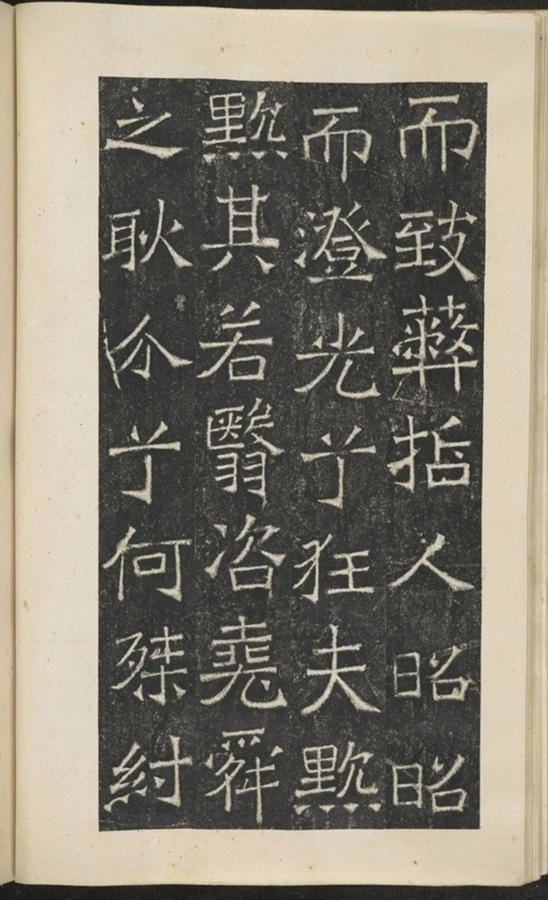 而致彝哲人昭昭
而澄光兮狂夫黕
黕其若翳咨堯舜
之耿介兮何桀紂